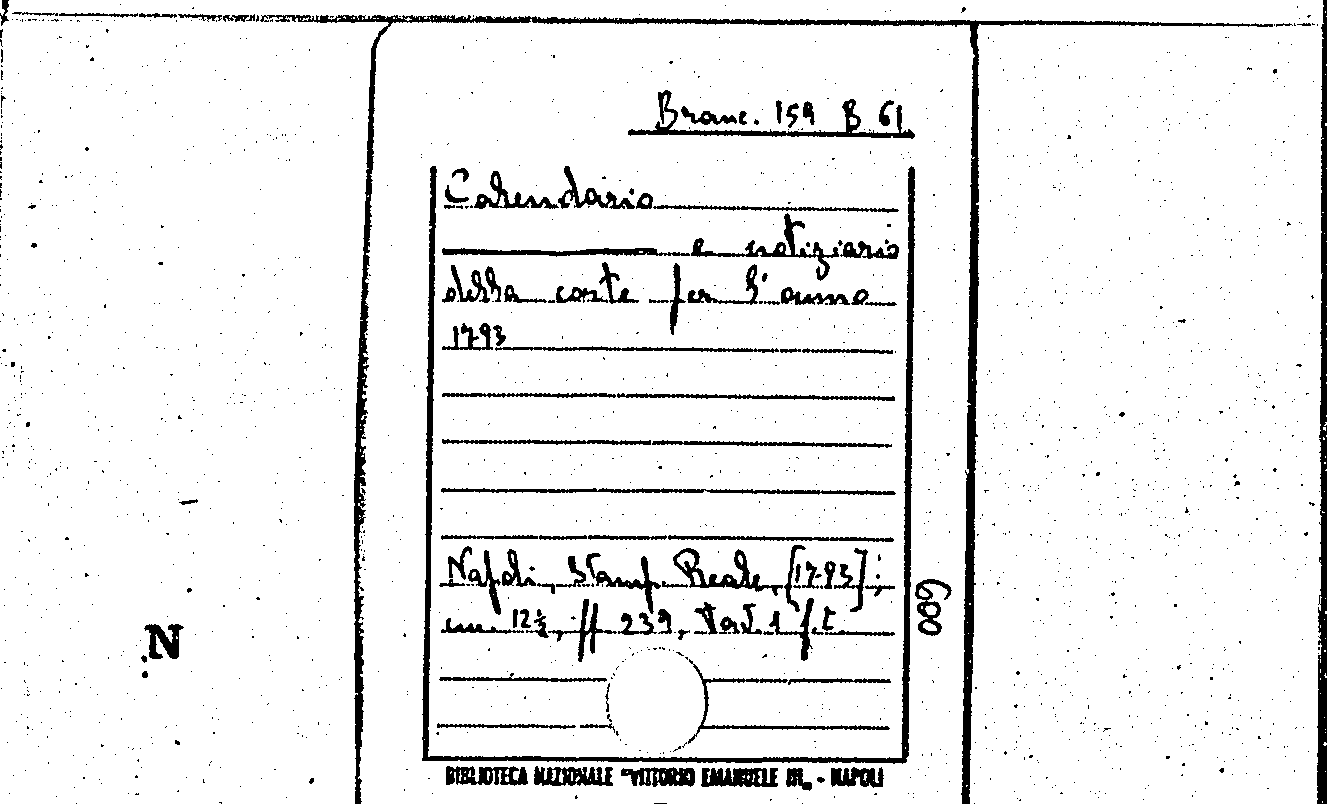 Branc. 159 B 61
Calendario
e notiziario
della corte per l'anno
1793
Napoli, Stamp. Reale, [1793];
in 12½, pp 239, tav. 1 f.t.
600
N
BIBLIOTECA NAZIONALE "VITTORIO EMANUELE III„ - NAPOLI